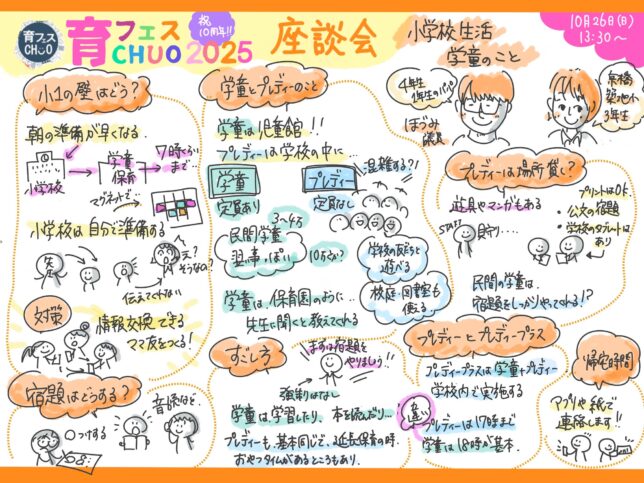 育フェス
CHUO
育フェス
CHUO 2025
祝
10周年!!
座談会
小学校生活
学童のこと
10月26日(日)
13:30〜
小1の壁はどう?
朝の準備が早くなる
小学校
学童
保育
7時ぐらい
まで
マグネットで…
小学校は自分で準備する
先生
え?
そうなの?
伝えてくれない
対策
情報交換できる
ママ友をつくる!
宿題はどうする?
音読など…
〇つけする
学童とプレディーのこと
学童は児童館!!
プレディーは学校の中に…
学童
プレディー
混雑する?!
定員あり
定員なし
3〜4万
民間学童
習い事っぽい
10万ぐらい?
学校の友だちと
遊べる
校庭・図書室も
使える
学童は、保育園のように…
先生に聞くと教えてくれる
すごし方
まずは宿題を
やりましょう!!
強制はなし
学童は学習したり、本を読んだり…
プレディーも、基本同じで、延長保育の時
おやつタイムがあるところもあり、
4年生
1年生のパパ
ほづみ
議員
京橋
築地小
3年生
プレディーは場所貸し?
道具やマンガもある
STAFF
見守り…
プリントはOK
・公文の宿題
・学校のタブレットは
あり
民間の学童は、
宿題をしっかりやってくれる!?
プレディーとプレディープラス
プレディープラスは学童+プレディー
学校内で実施する
違い
プレディーは17時まで
学童は18時が基本、
帰宅時間
アプリや紙で
連絡します!!